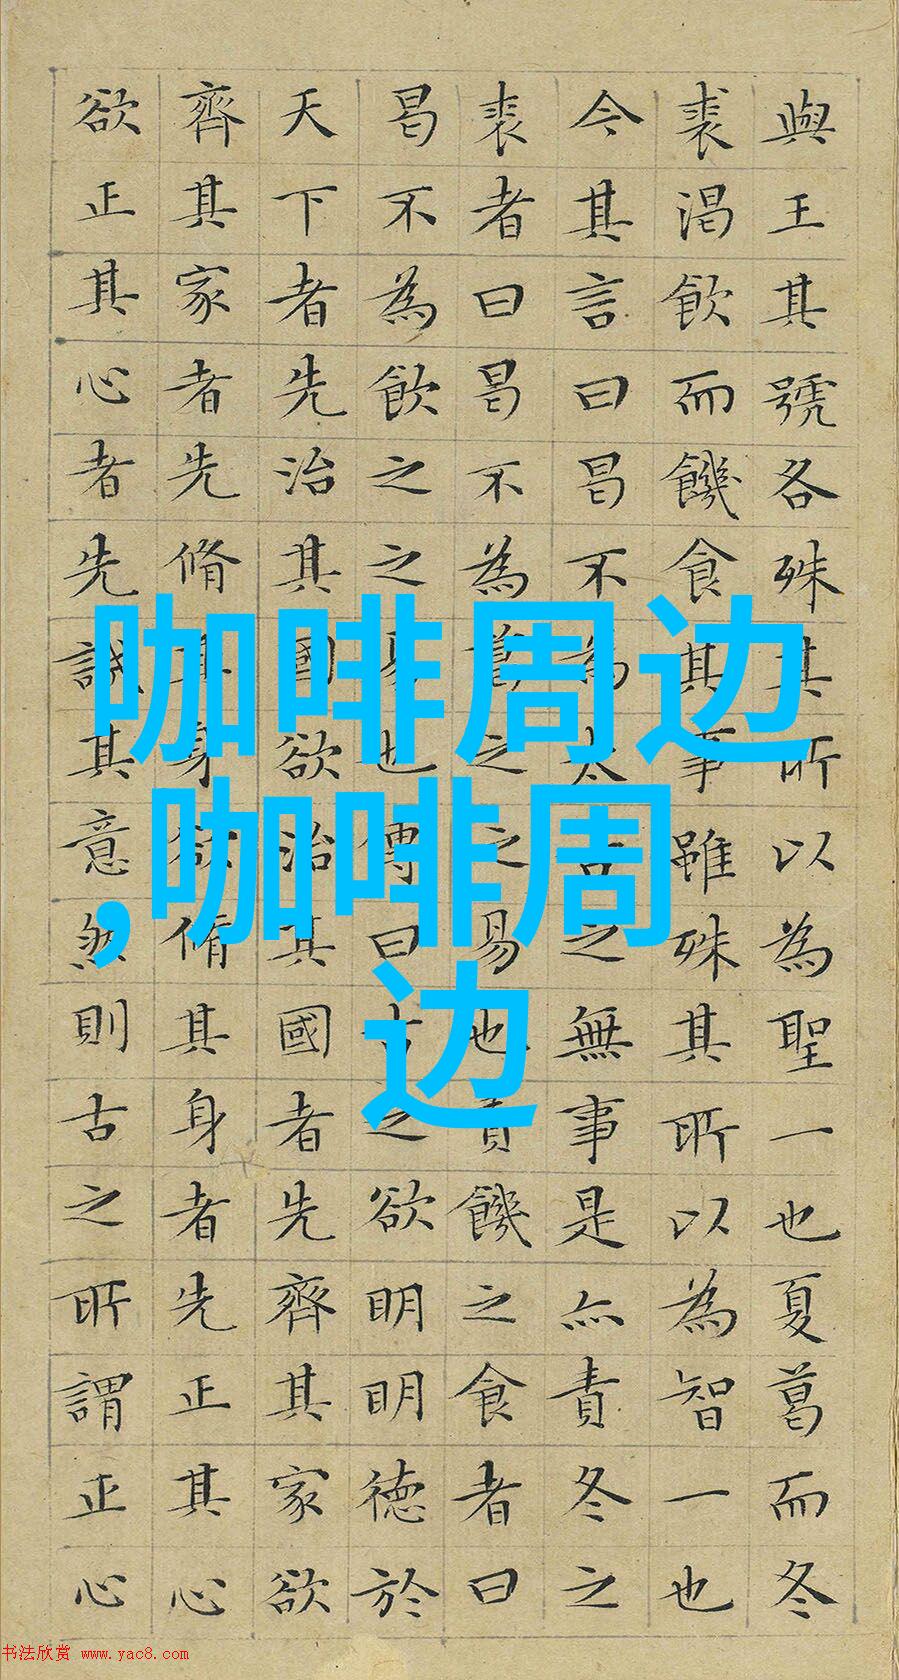 與王其號各殊其所以為聖一也夏葛而冬
裘渴飲而饑食其事雖殊其所以為智一也
今其言曰曷不為太古之無事是亦責冬之
裘者曰曷不為葛之之易也責饑之食者曰
曷不為飲之之易也傳曰古之欲明明德於
天下者先治其國欲治其國者先齊其家欲
齊其家者先脩其身欲脩其身者先正其心
欲正其心者先誠其意然則古之所謂正心
咖啡周边
,咖啡周
边
书法欣赏 www.yac8.com